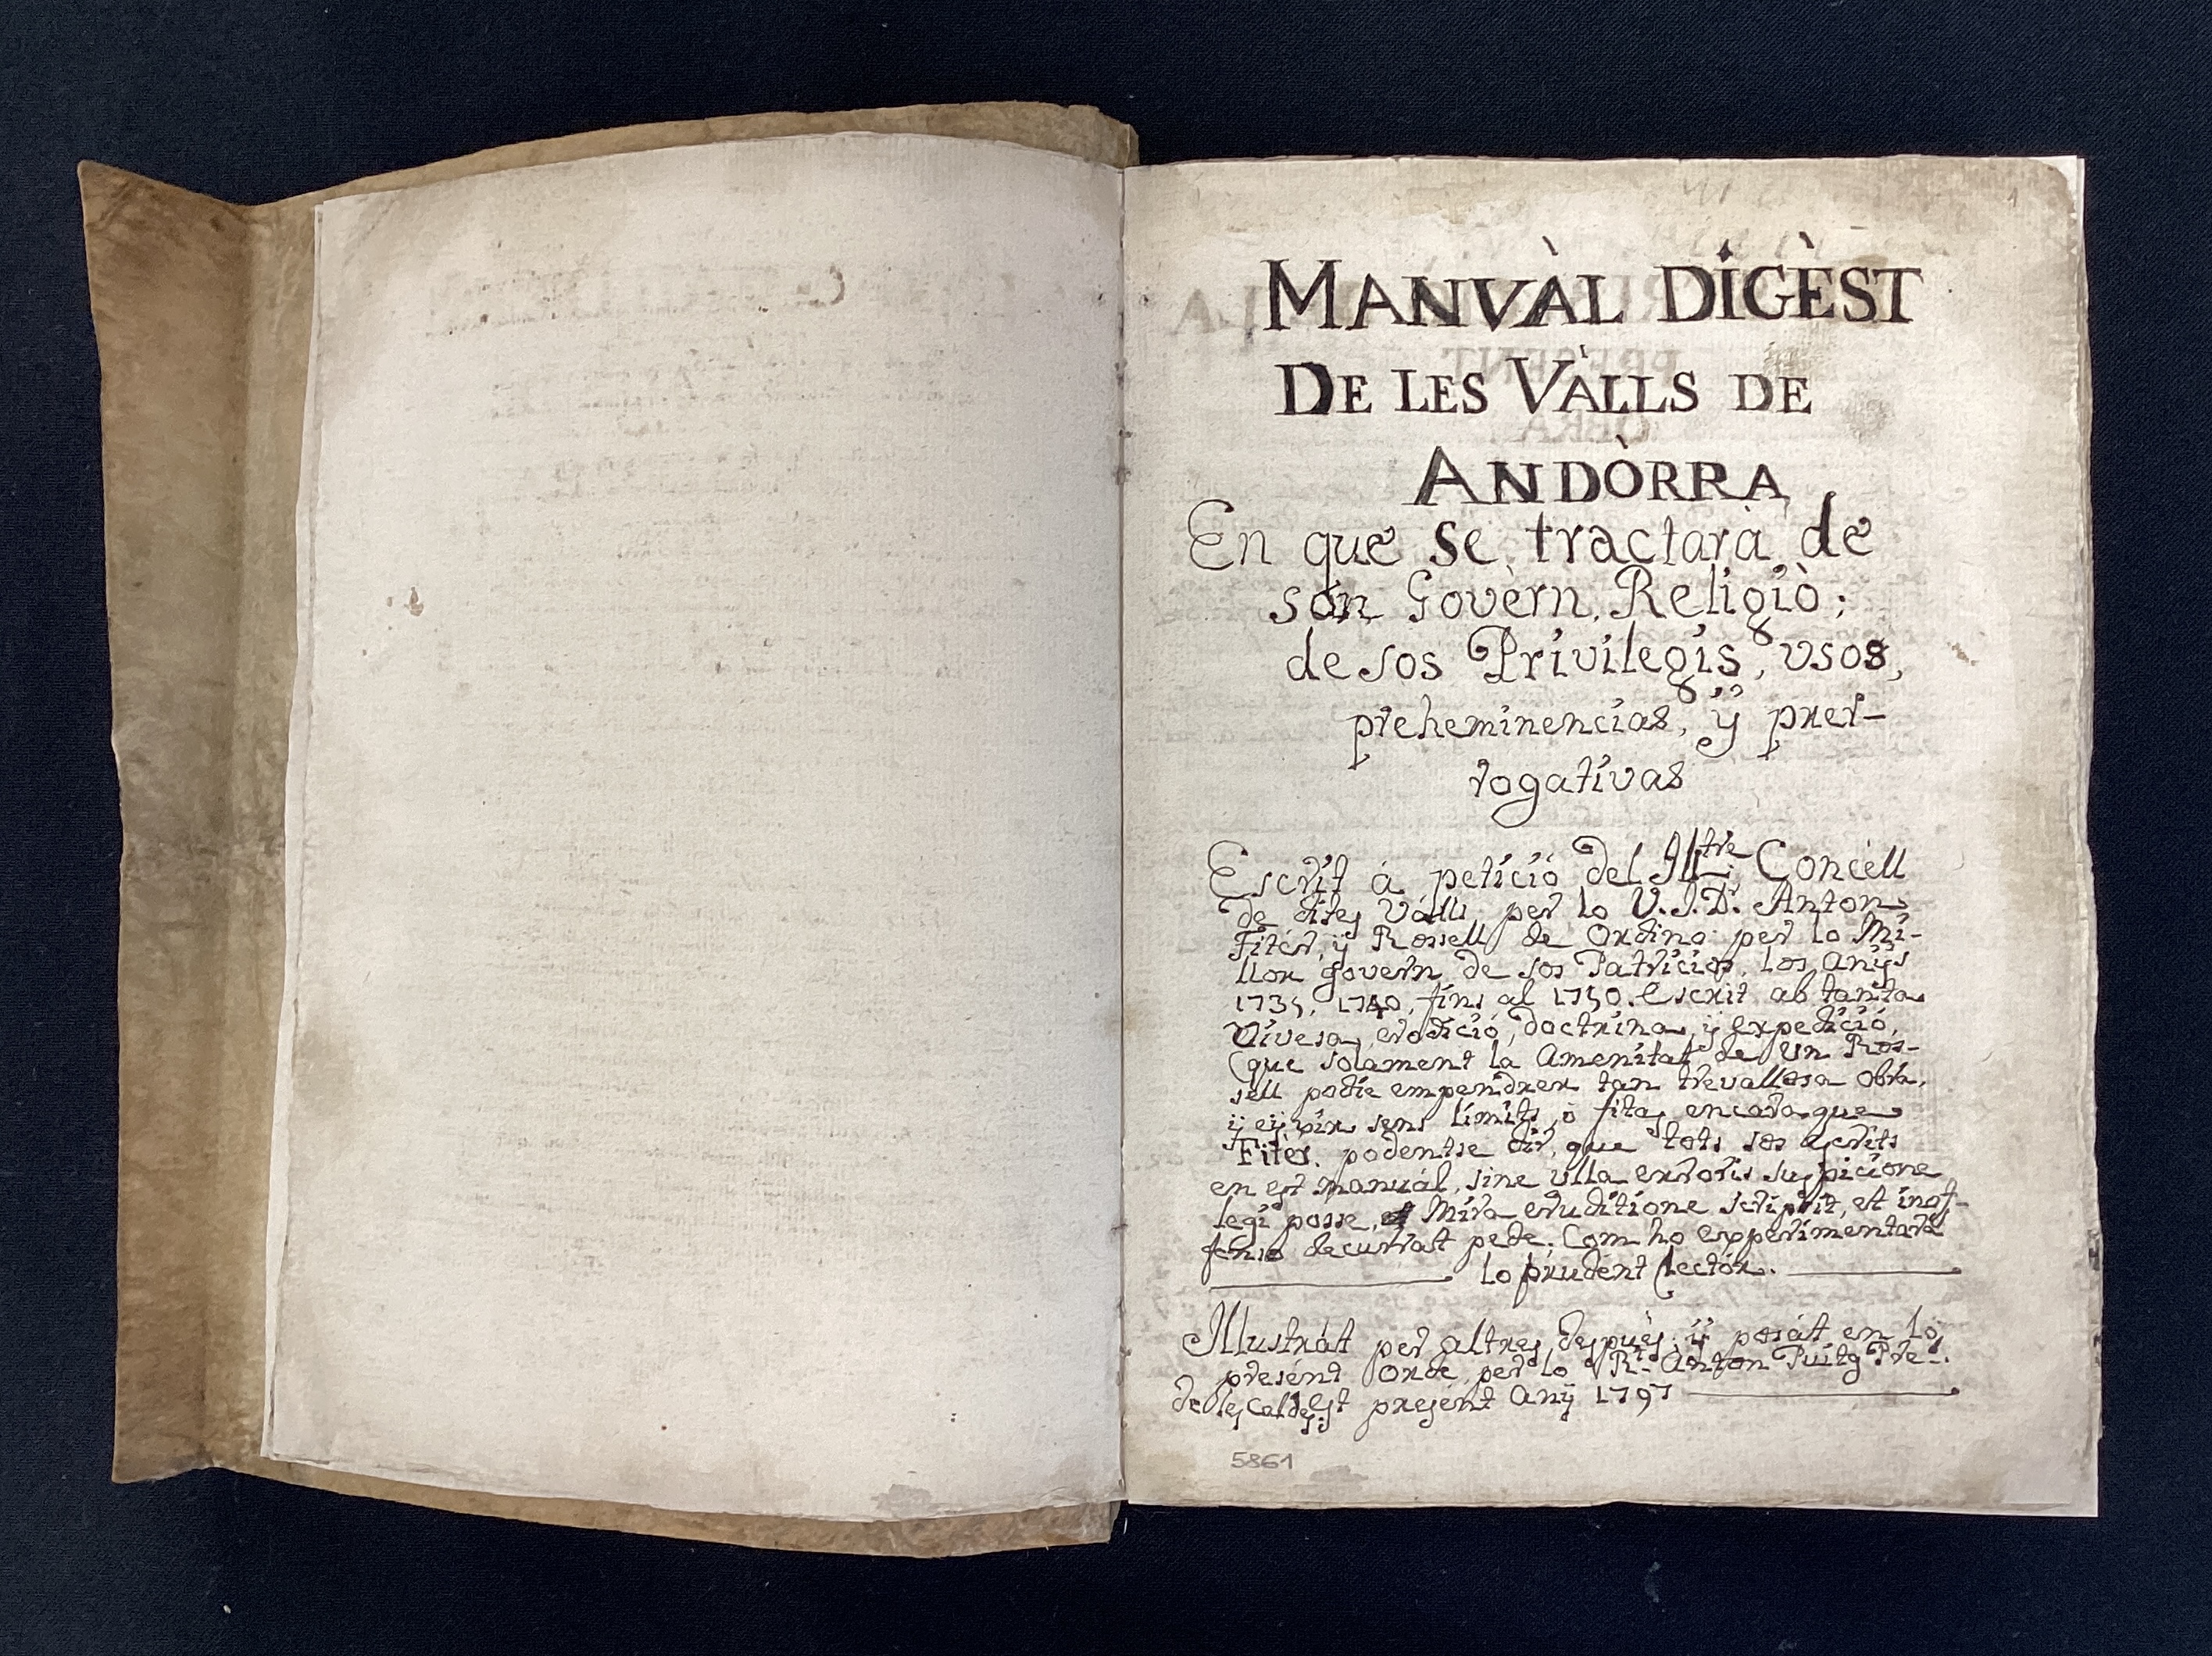 MANVÀL DIGÈST
DE LES VÀLLS DE
ANDÒRRA
En que se tractarà de
són Govèrn, Religiò;
de sos Privilegis, vsos,
preheminencias, ÿ prer-
rogativas
Escrit á petició del Illtre Concell
de dites Válls, per lo V.J.Dr. Anton
Fitér, ÿ Rossell de Ordino per lo Mi-
llor govern de sos Patricios, los anÿs
1735, 1740, fins al 1750. Escrit ab tanta
Vivesa, erudició, doctrina, ÿ expedició,
que solament la Amenitat de un Ros-
sell podie empendrer tan trevallosa obra,
ÿ sens limits, ó fitas encara que
Fitér. podentse dir, que tots sos escrits
en est manuál, sine ulla erroris suspicione
legi posse, Mira eruditione scripsit, et inof-
fenso decurrat pede; Com ho experimentará
lo prudént lectór.
Illustrát per altres després, ÿ posát en lo
presént Orde, per lo Rt. Anton Puitg Pre.
de les Caldes est presént Anÿ 1797
5861
1